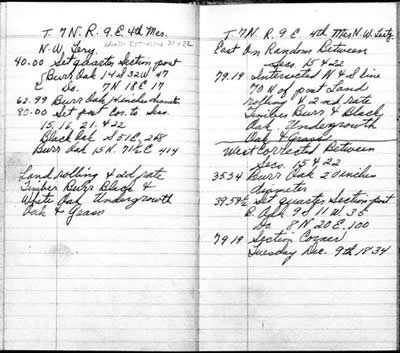 T. 7 N. R. 9 E. 4th Mer.
N.W. Tery.
40.00 Set quarter Section post
Burr Oak 14 S 32 W 47
& Do. 7 N 18 E 17
62.99 Burr Oak 14 inches diameter
80.00 Set post Cor. to Secs.
15, 16, 21, & 22
Black Oak S 51 E 268
Burr Oak 15 N. 71½ E 414
Land rolling & 2d rate
Timber Burr Black &
White Oak Undergrowth
Oak & Grass
T. 7 N. R. 9 E. 4th Mer N.W. Terty.
East On Random Between
Secs. 15 & 22
79.19 Intersected N & S line
70 N of post Land
rolling & 2nd rate
Timber Burr & Black
Oak Undergrowth
Oak & Grass
West Corrected Between
Secs. 15 & 22
35.34 Burr Oak 20 inches
diameter
39.59½ Set Quarter Section post
B. Oak 9 S 11 W. 35
Do 8 N 20 E. 100
79.19 Section Corner
Tuesday Dec. 9th 1834